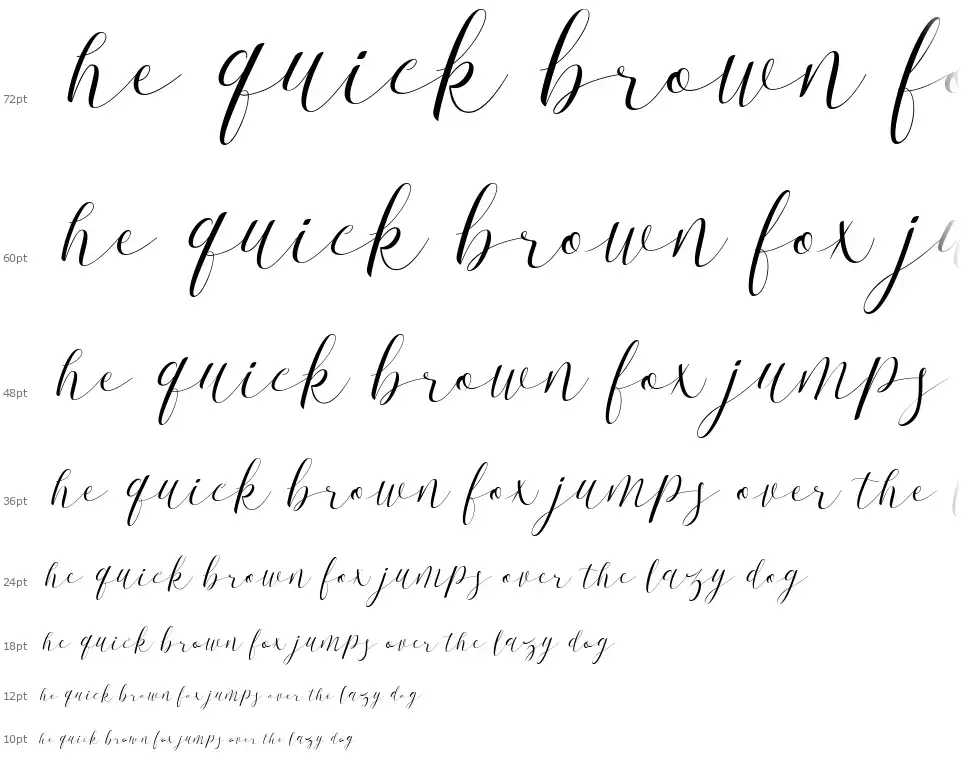 72pt he quick brown fo
60pt he quick brown fox ju
48pt he quick brown fox jumps
36pt he quick brown fox jumps over the
24pt he quick brown fox jumps over the lazy dog
18pt he quick brown fox jumps over the lazy dog
12pt he quick brown fox jumps over the lazy dog
10pt he quick brown fox jumps over the lazy dog